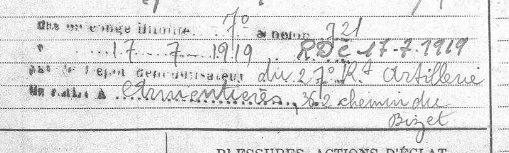 Mis en congé illimité 7° échelon 721
le 17 7 1919 RDC 17-7-1919
par le Dépôt démobilisateur du 27° Rt Artillerie
se retire à Armentières, 362 chemin du
Bizet
BLESSURES, ACTIONS D'ÉCLAT